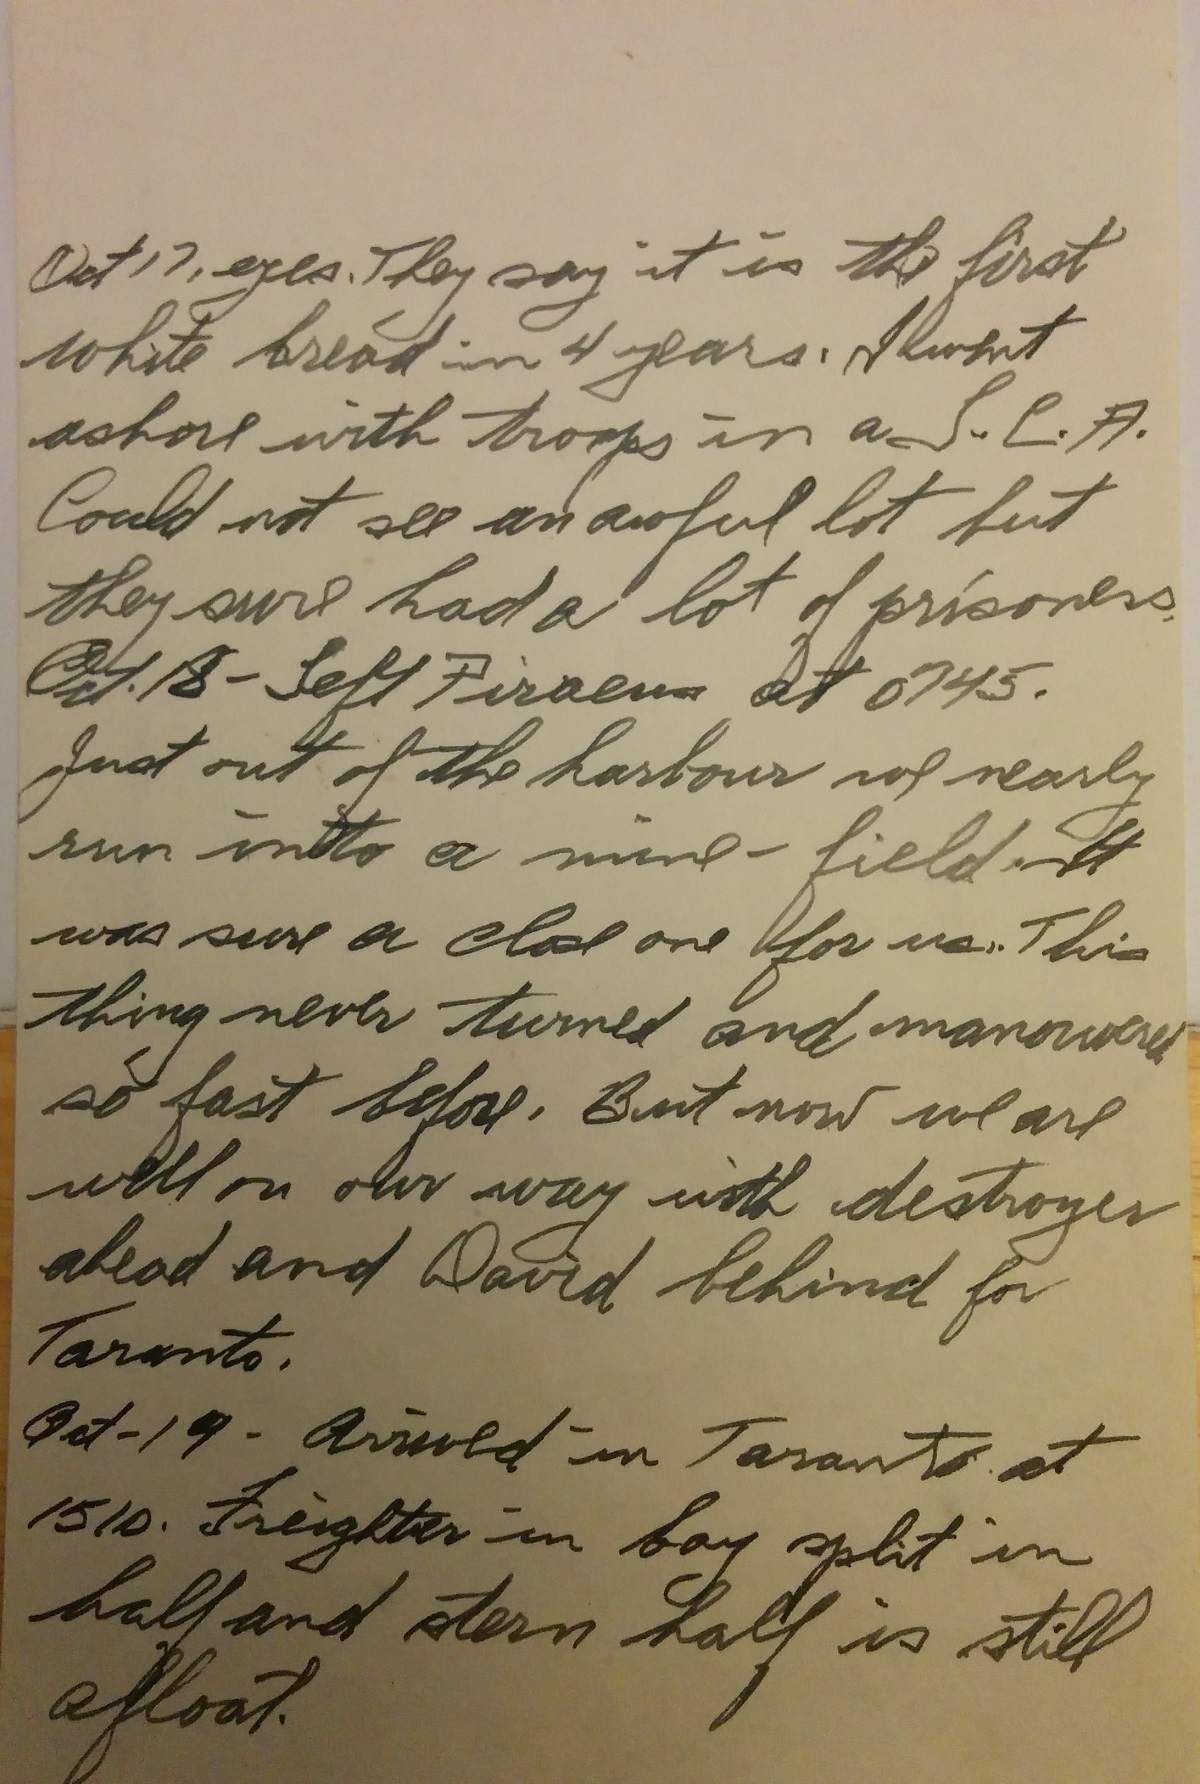 Oct 17, eyes. They say it is the first
white bread in 4 years. I went
ashore with troops in a L.C.A.
Could not see an awful lot but
they sure had a lot of prisoners.
Oct. 18 - Left Piraeus at 0745.
Just out of the harbour we nearly
run into a mine - field. It
was sure a close one for us. This
thing never turned and manouvered
so fast before. But now we are
well on our way with destroyer
ahead and David behind for
Taranto.
Oct - 19 - Arrived in Taranto at
1510. Freighter in bay split in
half and stern half is still
afloat.